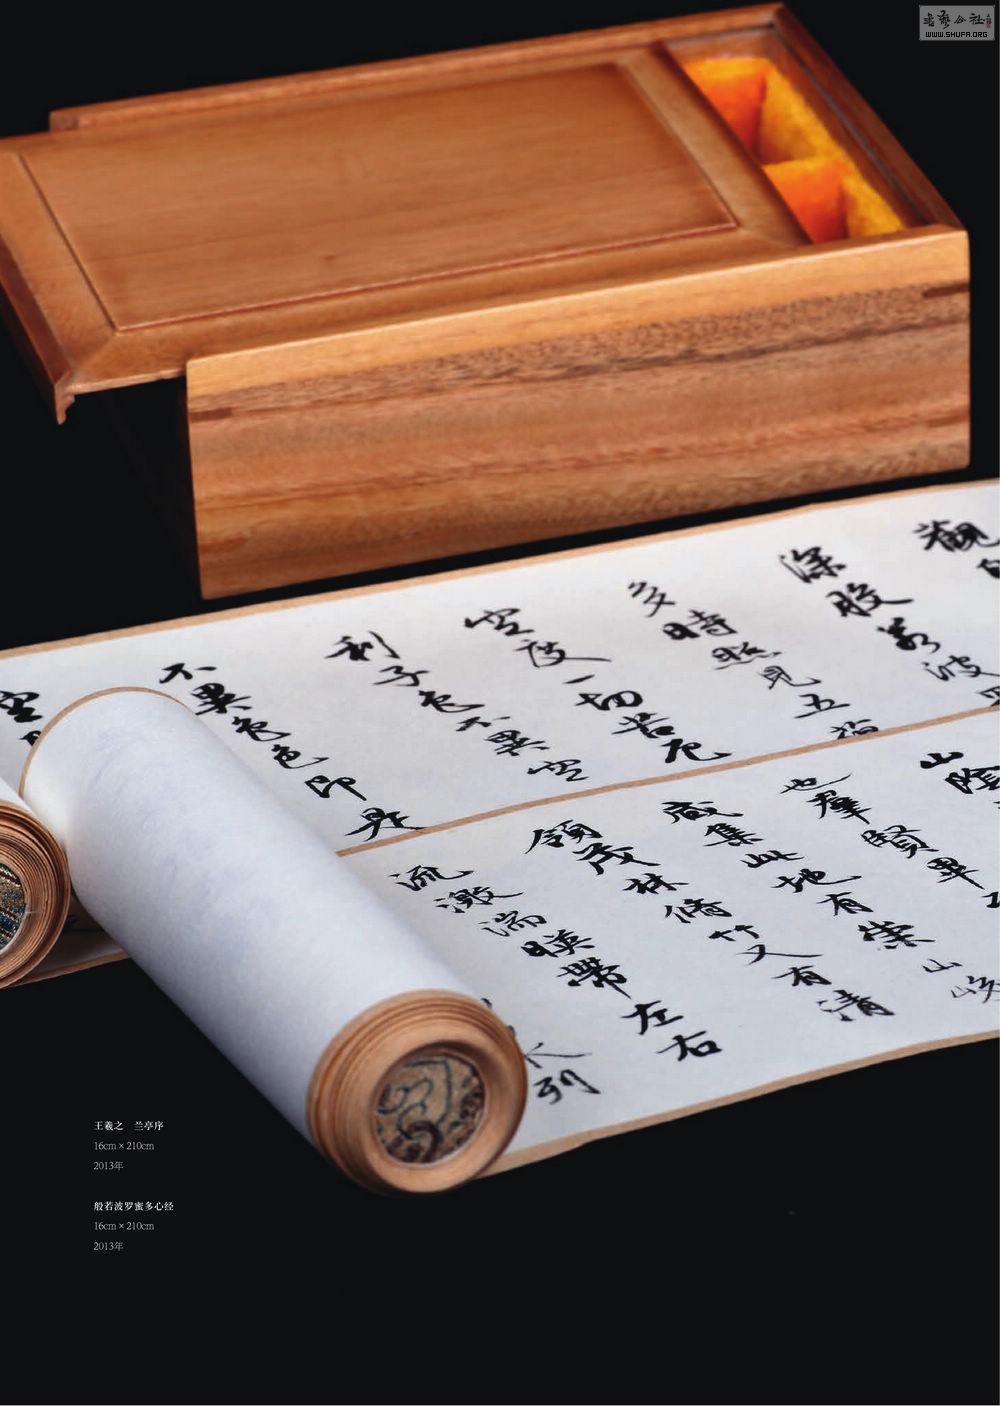 書藝公社
WWW.SHUFA.ORG
觀自
深般若波
多時照見五蘊
空度一切苦厄
利子色不異空
不異色色即是
空
山陰
也羣賢畢
咸集此地有崇山峻
領茂林脩竹又有清
流激湍暎帶左右
列
王羲之 兰亭序
16cm×210cm
2013年
般若波罗蜜多心经
16cm×210cm
2013年